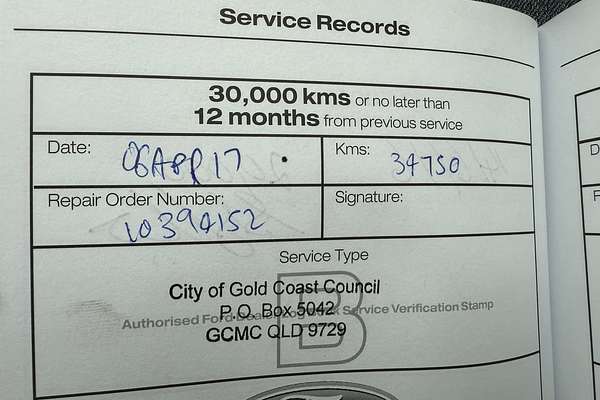 Service Records
30,000 kms or no later than
12 months from previous service
Date: 06 APR 17
Kms: 34750
Repair Order Number: 10394152
Signature:
Service Type
B
City of Gold Coast Council
P.O. Box 5042
Authorised Ford Dealer Logbook Service Verification Stamp
GCMC QLD 9729